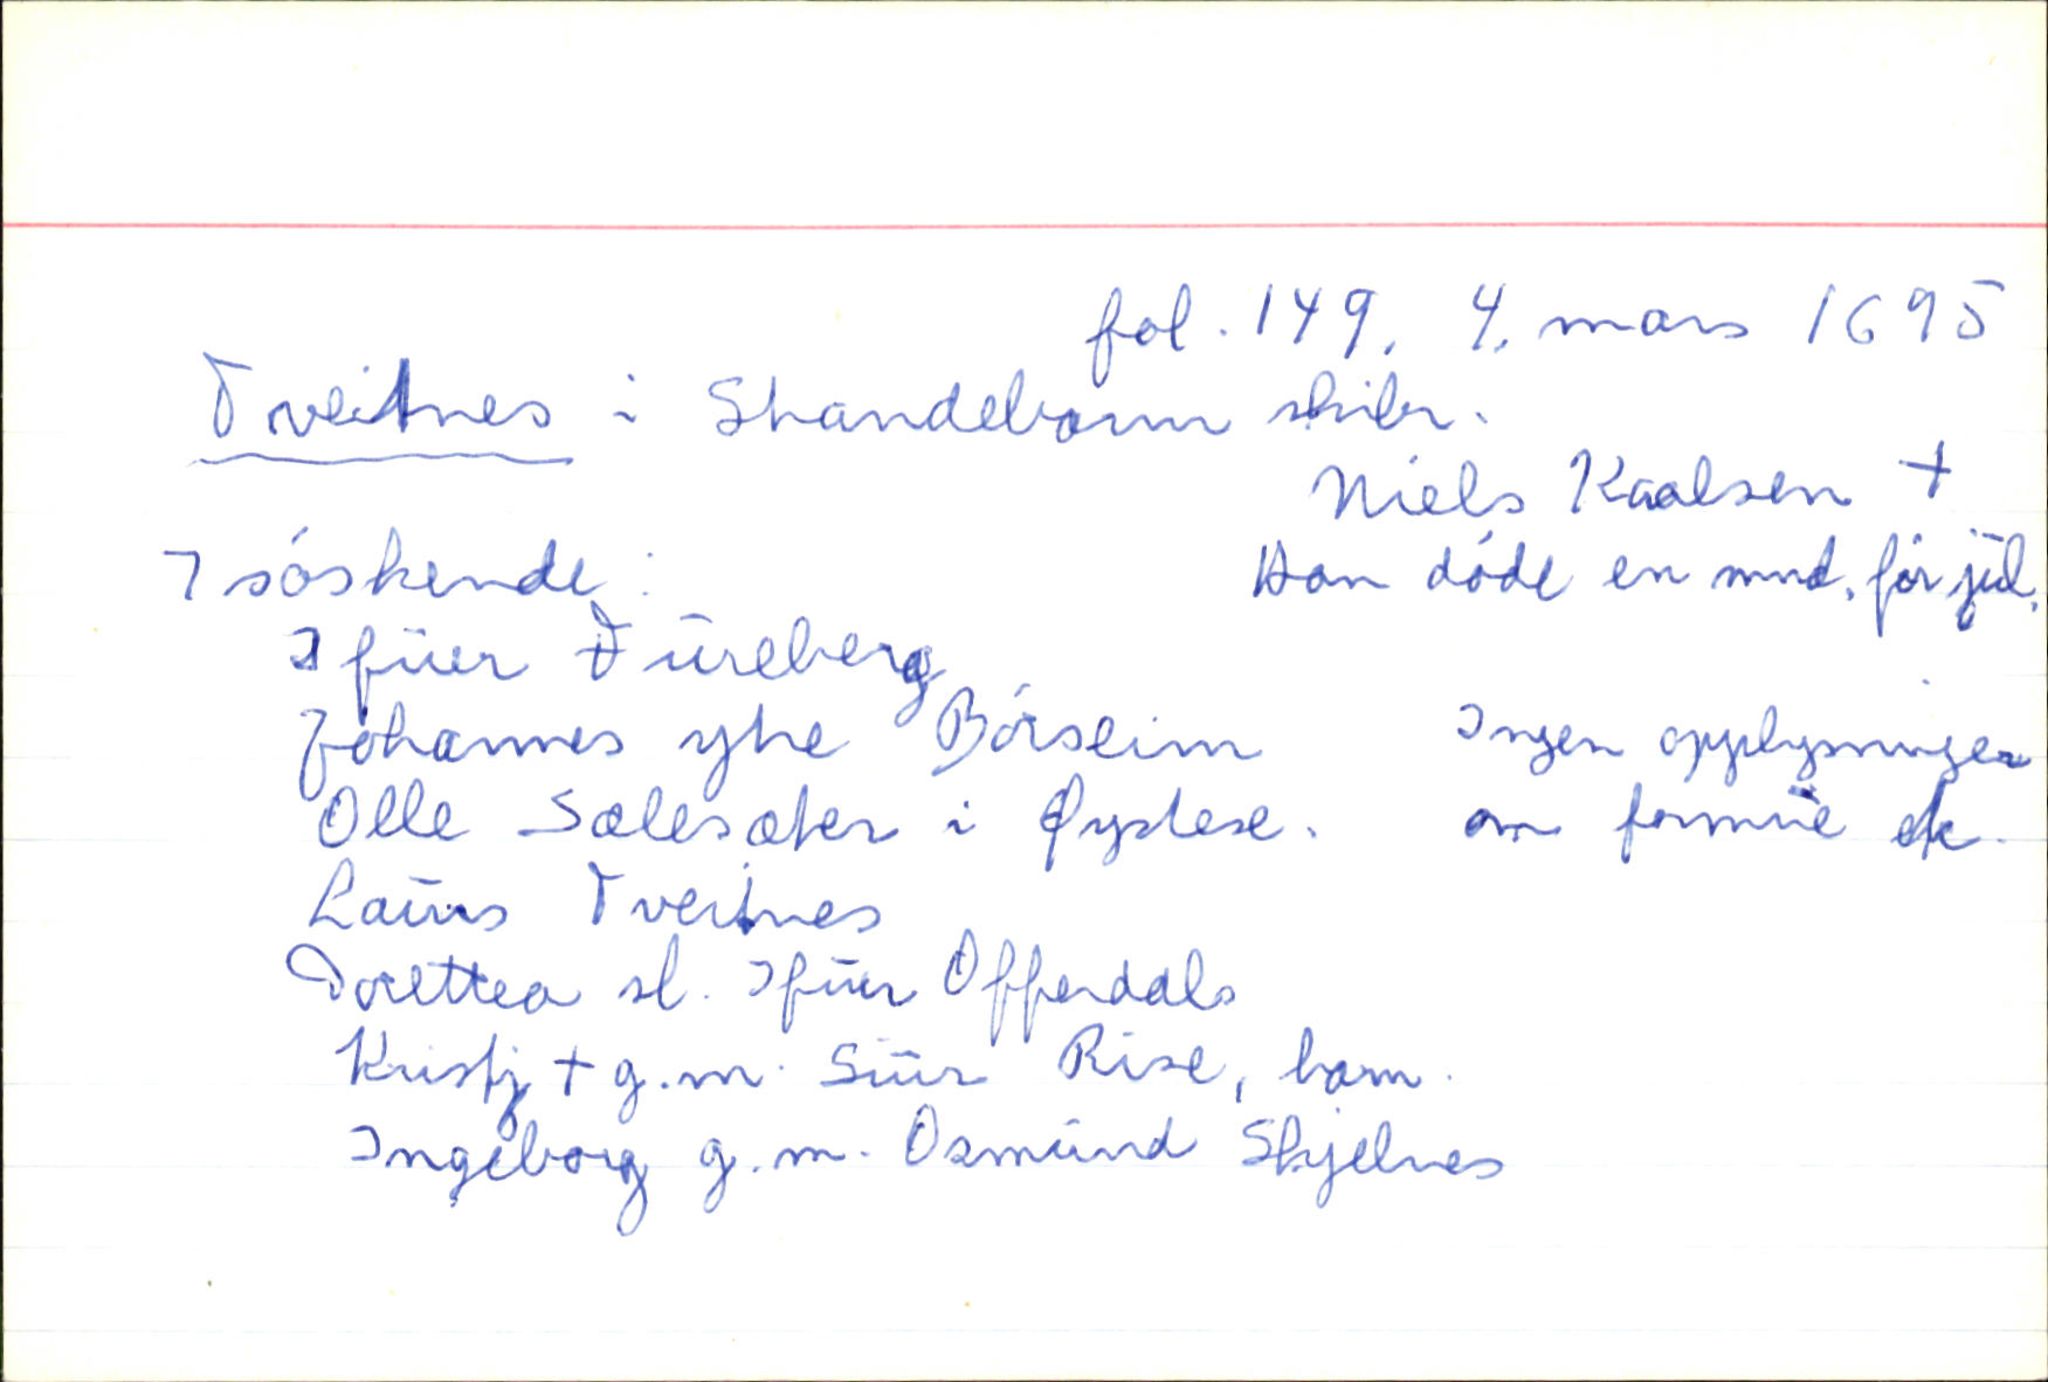 fol. 149. 4. mars 1695
Tveitnes i Strandebarm skibr.
Niels Kaalsen +
7 søskende: Han døde en mnd. før jul.
Ifuer Tureberg
Johannes ytre Børseim Ingen opplysninger
Olle Sælesæter i Øystese. om formue etc.
Laurs Tveitnes
Dorettea sl. Ifuer Offerdals
Kristj + g.m. Siur Rise, barn.
Ingeborg g.m. Osmund Skjelnes